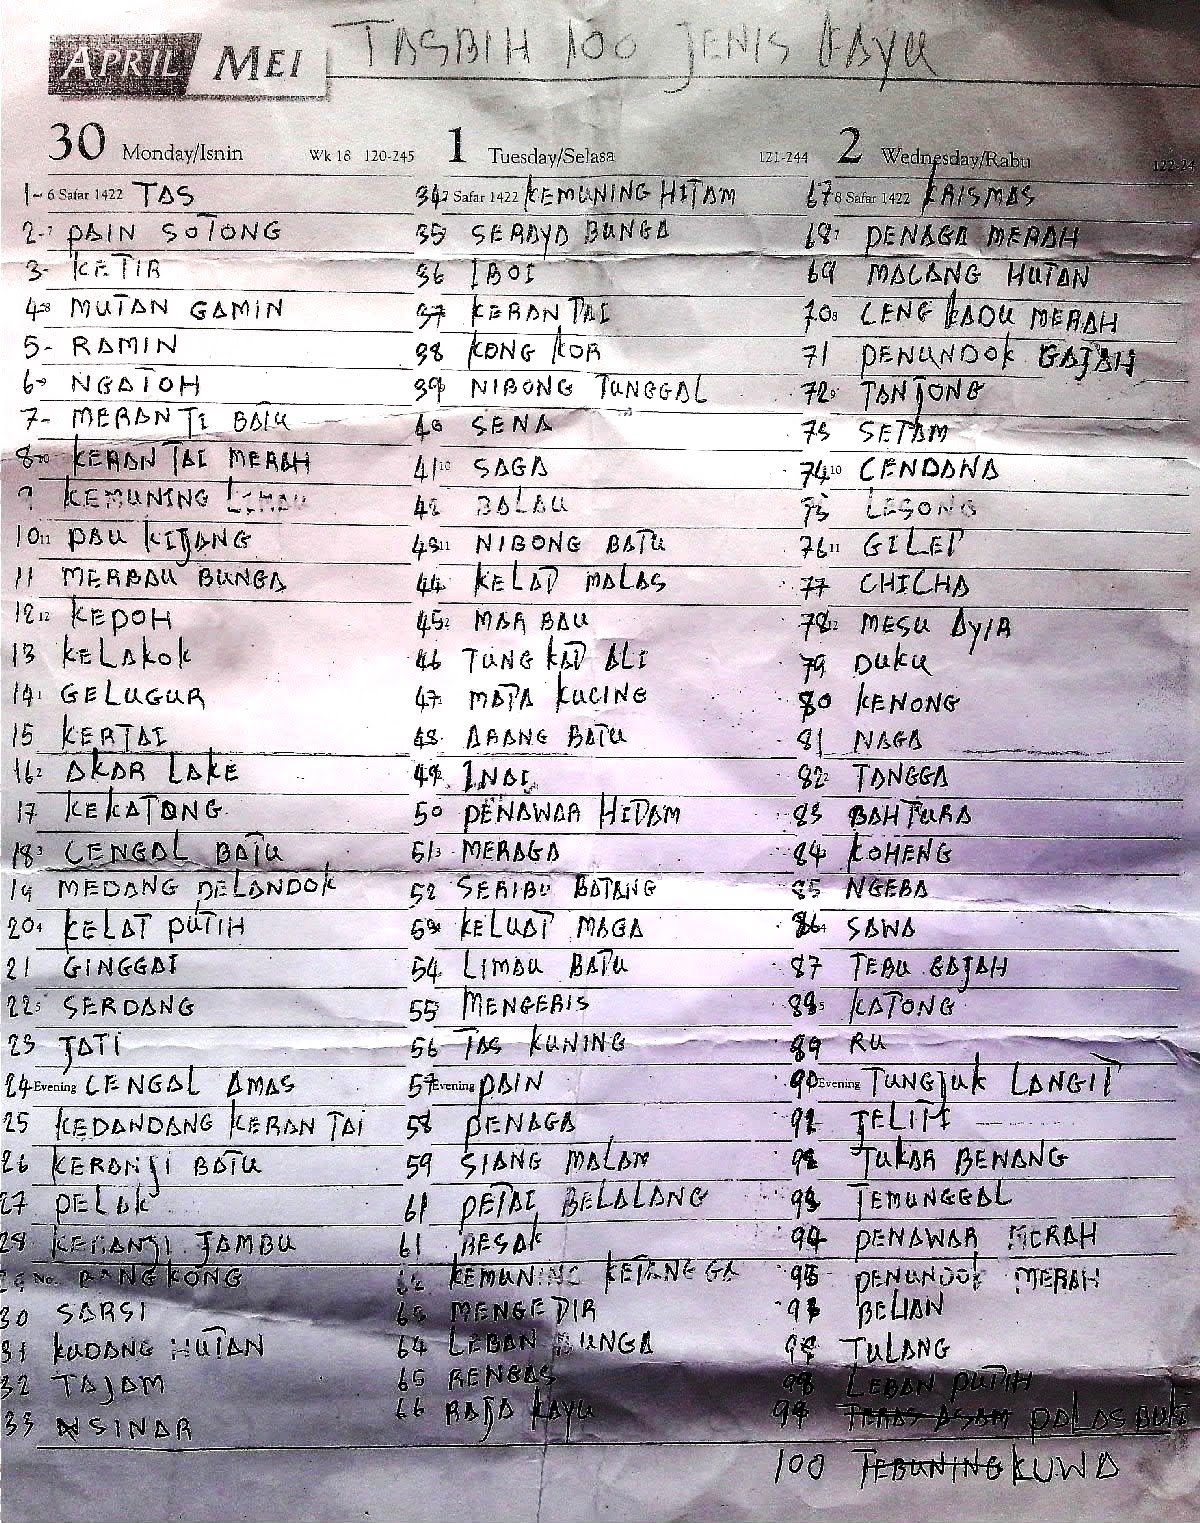 APRIL MEI TASBIH 100 JENIS KAYU
30 Monday/Isnin Wk 18 120-245
1- 6 Safar 1422 TAS
2- PAIN SOTONG
3- KETIR
4- MUTAN GAMIN
5- RAMIN
6- NGATOH
7- MERANTI BATU
8 KERANTAI MERAH
9 KEMUNING LIMAU
10 PAU KIJANG
11 MERBAU BUNGA
12 KEPOH
13 KELAKOK
14 GELUGUR
15 KERTAI
16 AKAR LAKE
17 KEKATONG
18 CENGAL BATU
19 MEDANG PELANDOK
20 KELAT PUTIH
21 GINGGAI
22 SERDANG
23 JATI
24 Evening CENGAL AMAS
25 KEDANDANG KERANTAI
26 KERANJI BATU
27 PELAK
28 KERANJI JAMBU
29 No. BANGKONG
30 SARSI
31 KUDANG HUTAN
32 TAJAM
33 SINAR
1 Tuesday/Selasa 121-244
34 7 Safar 1422 KEMUNING HITAM
35 SERAYA BUNGA
36 IBOI
37 KERANTAI
38 KONGKOR
39 NIBONG TUNGGAL
40 SENA
41 10 SAGA
42 BALAU
43 11 NIBONG BATU
44 KELAT MALAS
45 MAR BAU
46 TUNGKAT ALI
47 MATA KUCING
48 ARANG BATU
49 INAI
50 PENAWAR HITAM
51 3 MERAGA
52 SERIBU BATANG
53 KELUAT MAGA
54 LIMAU BATU
55 MENGERIS
56 TAS KUNING
57 Evening PAIN
58 PENAGA
59 SIANG MALAM
61 PETAI BELALANG
61 BESAK
62 KEMUNING KETANGGA
63 MENGEDIR
64 LEBAN BUNGA
65 RENGAS
66 RAJA KAYU
2 Wednesday/Rabu 122-24
67 8 Safar 1422 KRISMAS
68 PENAGA MERAH
69 MALANG HUTAN
70 LENGKADU MERAH
71 PENUNDOK GAJAH
72 TANJONG
73 SETAM
74 10 CENDANA
75 LESONG
76 11 GILET
77 CHICHA
78 12 MESU AYIR
79 DUKU
80 KENONG
81 NAGA
82 TANGGA
83 BAHTURA
84 KOHENG
85 NGEBA
86 SAWA
87 TEBU GAJAH
88 KATONG
89 RU
90 Evening TUNGJUK LANGIT
91 JELITI
92 TUKAR BENANG
93 TEMUNGGAL
94 PENAWAR MERAH
95 PENUNDOK MERAH
BELIAN
TULANG
98 LEBAN PUTIH
99 TERAS ASAM PALAS BUKIT
100 TEBUNING KUWA